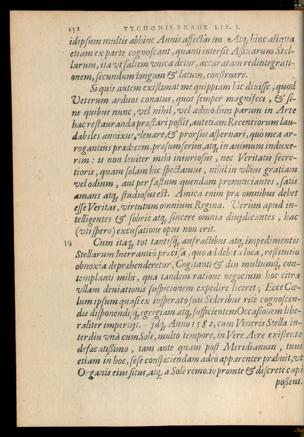 152 TYCHONIS BRAHE LIB. I.
idipsum multis abhinc Annis affectarim, Atq; hinc aliqua
etiam ex parte cognoscant, quanti intersit Affixarum Stel-
larum, ita vt saltem vnica detur, accuratam redintegrati-
onem, secundum longum & latum, constituere.
Si quis autem existimat me quippiam hic dixisse, quod
Veterum arduos conatus, quos semper magnifeci, & si-
ne quibus nunc, vel nihil, vel admodum parum in Arte
hac restauranda præstari possit, aut etiam Recentiorum lau-
dabiles annixus, eleuare, & prorsus aspernari, quo mea ar-
rogantius prædicem præsumserim, atq; in animum induxe-
rim: is non leuiter mihi iniurius, nec Veritatis secre-
tioris, quam solam hic spectamus, nihil in vllius gratiam
vel odium, aut per fastum quendam pronunciantes, satis
amans atq; studiosus est. Amica enim præ omnibus debet
esse Veritas, virtutum omnium Regina. Verum apud in-
telligentes & sobriè atq; sincerè omnia diiudicantes, hac
(vti spero) excusatione opus non erit.
Cum itaq; tot tantisq; anfractibus atq; impedimentis
Stellarum Inerrantium præcisa, quæ à [debet] loca, restitutio
obnoxia deprehenderetur, Cogitanti & diu multumq; con-
templanti mihi, qua tandem ratione negocium hoc citra
vllam deuiationis suspicionem expedire liceret; Ecce Cœ-
lum ipsum quasi ex insperato suis Sideribus ritè cognoscen-
dis disponendisq; egregiam atq; sufficientem Occasionem libe-
raliter impertijt. Idq; Anno 1582, cum Veneris Stella in-
terdiu vnà cum Sole, multo tempore, in Vere Aere existente
defæcatissimo, tam ante quam post Meridianum, tum
etiam in hoc, sese conspiciendam adeo apparenter præbuit, vt
Organis eius situs, atq; à Sole remotio promtè & discretè capi
possent.